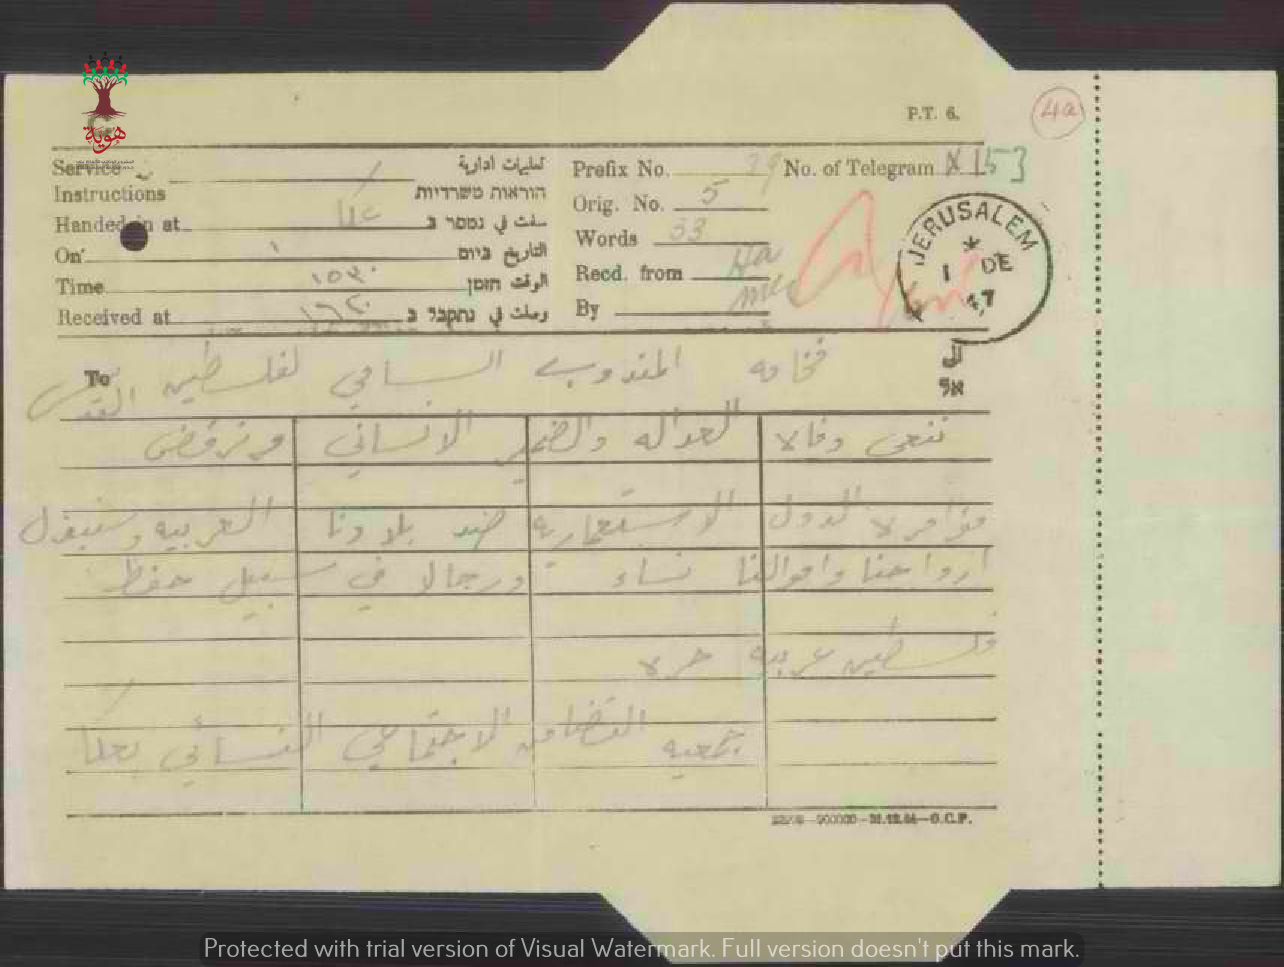 هوية
P.T. 6.
4a
Service تعليمات ادارية
Instructions הוראות משרדיות
Prefix No. 29 No. of Telegram X 153
Handed in at عكا سلمت في נמסר ב
Orig. No. 5
On ١ التاريخ ביום
Words 33
Time ١٥٣٠ الوقت הזמן
Recd. from Ha
Received at ١٦٢٠ وصلت في נתקבל ב
By
JERUSALEM
1 DE
47
To الى
אל
فخامه المندوب السامي لفلسطين القدس
ننعى وفاة العداله والضمير الانساني ونرفض
مؤامرة الدول الاستعماريه ضد بلادنا العربيه وسنبذل
ارواحنا واموالنا نساء ورجالا في سبيل حفظ
فلسطين عربيه حرة
جمعيه التضامن الاجتماعي النسائي بعكا
900000—31.12.44—G.C.P.
Protected with trial version of Visual Watermark. Full version doesn't put this mark.